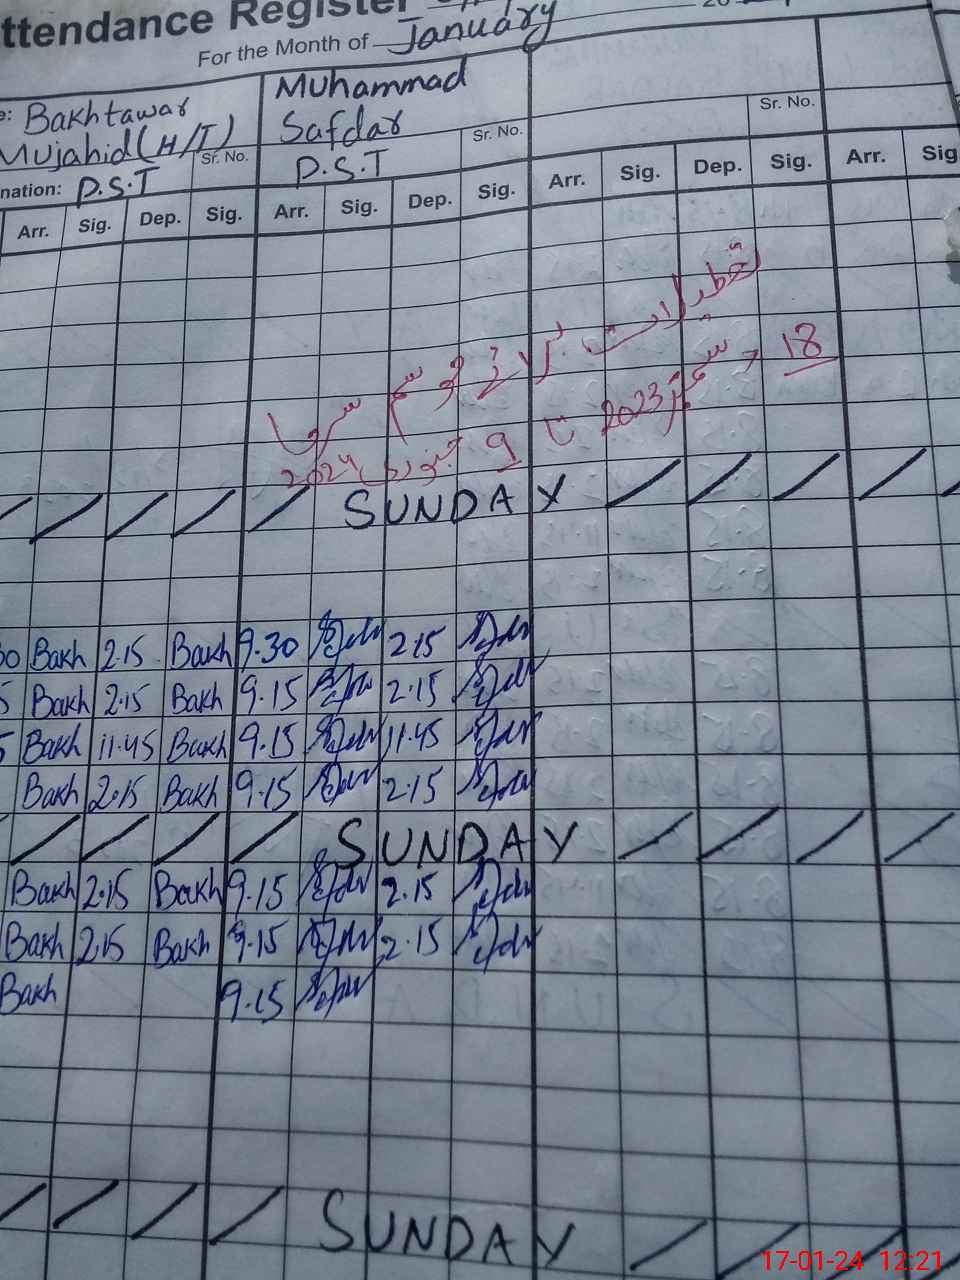 ttendance Register
For the Month of January
Bakhtawar
Mujahid (H/T)
Sr. No.
nation: P.S.T
Muhammad
Safdar
P.S.T
Sr. No.
Sr. No.
Arr. Sig. Dep. Sig. Arr. Sig. Dep. Sig. Arr. Sig. Dep. Sig. Arr. Sig
تعطیلات برائے موسم سرما
18 دسمبر 2023 تا 9 جنوری 2024
SUNDAY
Bakh 2.15 Bakh 9.30 2.15
Bakh 2.15 Bakh 9.15 2.15
Bakh 11.45 Bakh 9.15 11.45
Bakh 2.15 Bakh 9.15 2.15
SUNDAY
Bakh 2.15 Bakh 9.15 2.15
Bakh 2.15 Bakh 9.15 2.15
Bakh 9.15
SUNDAY
17-01-24 12:21